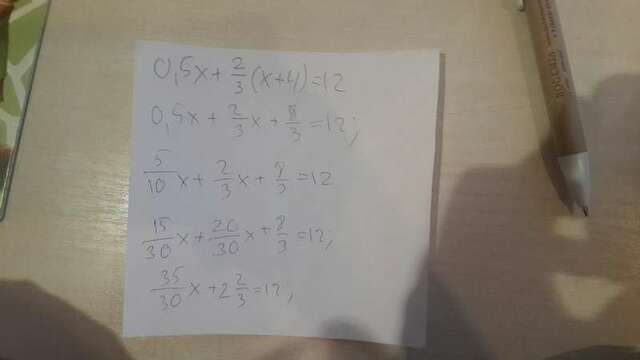 0,5x + 2/3 (x+4) = 12
0,5x + 2/3 x + 8/3 = 12;
5/10 x + 2/3 x + 8/3 = 12
15/30 x + 20/30 x + 8/3 = 12;
35/30 x + 2 2/3 = 12;